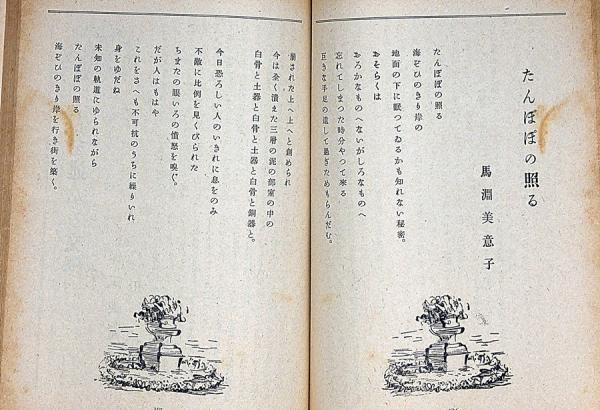 たんぽぽの照る
馬淵美意子
たんぽぽの照る
海ぞひのきり岸の
地面の下に眠つてゐるかも知れない秘密。
おそらくは
おろかなものへないがしろなものへ
忘れてしまつた時分やつて来る
巨きな手足の遺して過ぎたためもらんだむ。
崩された上へ上へと創められ
今は全く潰えた三層の泥の部室の中の
白骨と土器と白骨と土器と白骨と銅器と。
今日恐ろしい人のいきれに息をのみ
不敵に比例を見くびられた
ちまたの眼いろの憤怒を嗅ぐ。
だが人はもはや
これをさへも不可抗のうちに繰りいれ
身をゆだね
未知の軌道にゆられながら
たんぽぽの照る
海ぞひのきり岸を行き街を築く。